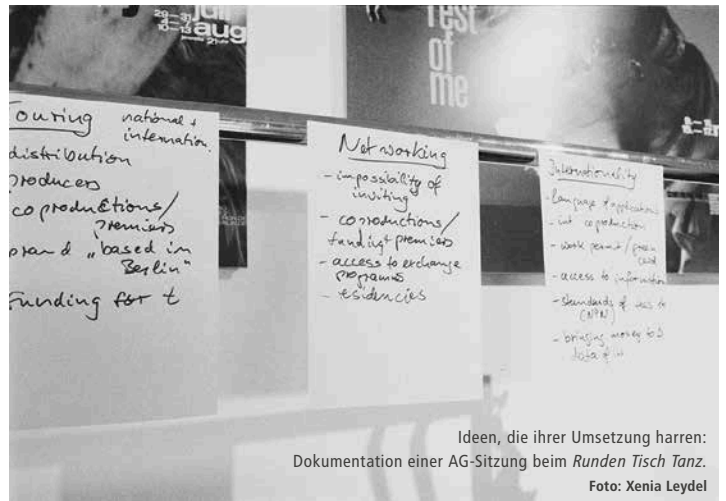 juli
29–31
aug
10–13
rest
of
me
ouring national +
internation.
distribution
producers
coproductions/
premiers
brand "based in
Berlin"
Funding for t
Networking
- impossibility of
inviting
- coproductions/
funding + premiers
- access to exchange
programms
- residencies
Internationality
- language of applications
- int coproduction
- work permit / green
card
- access to information
- standards of
(NPN)
- bringing money to
Ideen, die ihrer Umsetzung harren:
Dokumentation einer AG-Sitzung beim Runden Tisch Tanz.
Foto: Xenia Leydel